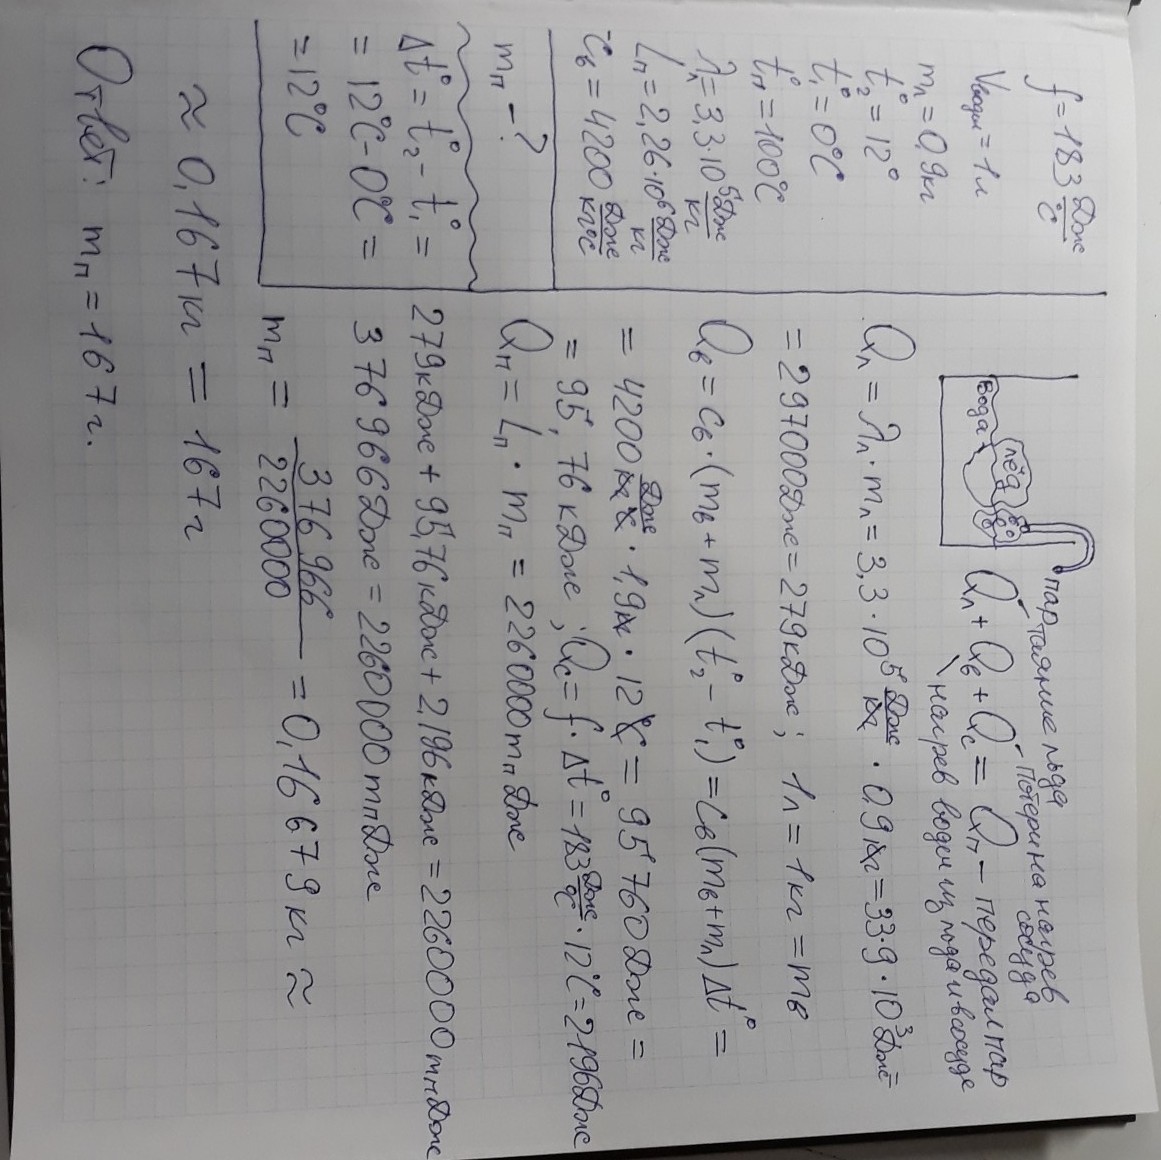 f = 183 Дж/°C
Vводы = 1л
mл = 0,9кг
t°₂ = 12°
t°₁ = 0°C
t°п = 100°C
λл = 3,3·10⁵ Дж/кг
Lп = 2,26·10⁶ Дж/кг
cв = 4200 Дж/кг°C
mп – ?
Δt° = t°₂ - t°₁ =
= 12°C - 0°C =
= 12°C
вода
лёд
пар
таяние льда
потери на нагрев
сосуда
Qл + Qв + Qс = Qп – передал пар
нагрев воды из льда и в сосуде
Qл = λл · mл = 3,3 · 10⁵ Дж/кг · 0,9кг = 33·9·10³Дж =
= 297000Дж = 279кДж ; 1л = 1кг = mв
Qв = cв·(mв + mл)(t°₂ - t°₁) = cв(mв+mл)Δt° =
= 4200 Дж/кг°C · 1,9кг · 12°C = 95760Дж =
= 95,76кДж ; Qс = f · Δt° = 183 Дж/°C · 12°C = 2196Дж
Qп = Lп · mп = 2260000mп Дж
279кДж + 95,76кДж + 2,196кДж = 2260000mпДж
376966Дж = 2260000mпДж
mп = 376966/2260000 = 0,16679кг ≈
≈ 0,167кг = 167г
Ответ: mп = 167г.